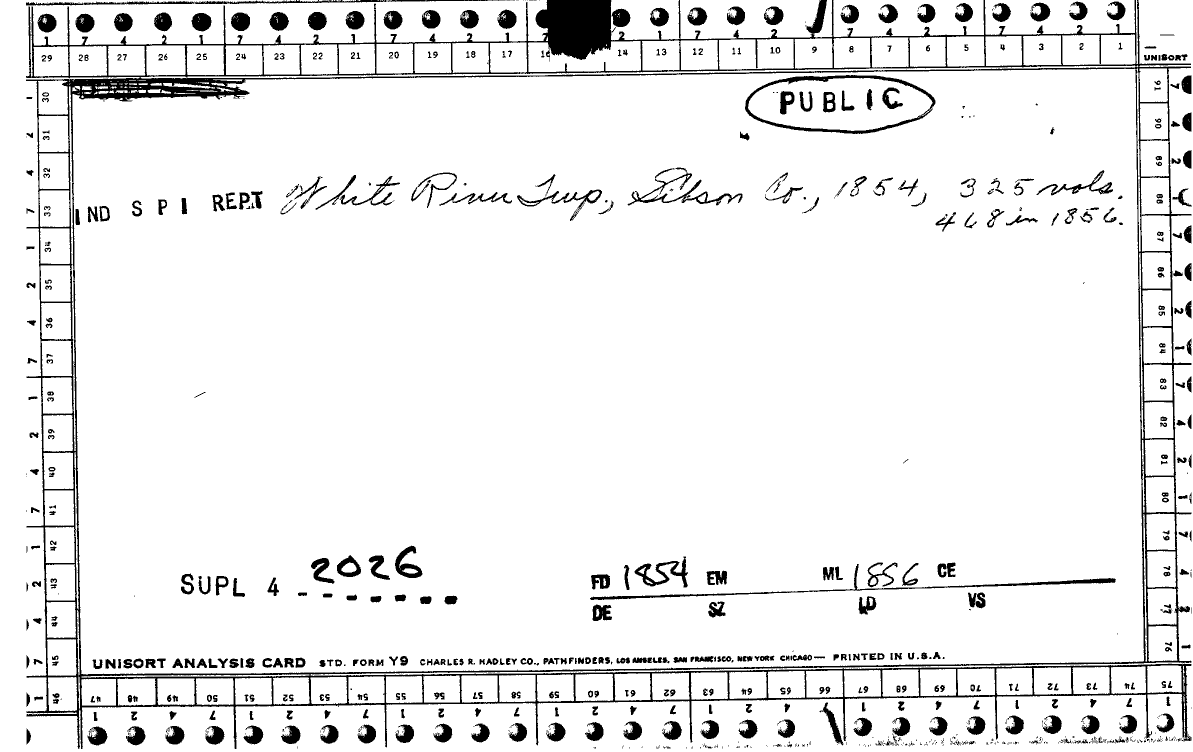 1 7 4 2 1 7 4 2 1 7 4 2 1 7 2 1 7 4 2 1 7 4 2 1 7 4 2 1
29 28 27 26 25 24 23 22 21 20 19 18 17 16 14 13 12 11 10 9 8 7 6 5 4 3 2 1
UNISORT
PUBLIC
IND S P I REPT White River Twp., Gibson Co., 1854, 325 vols.
468 in 1856.
SUPL 4 2026
FD 1854 EM ML 1856 CE
DE SZ LD VS
UNISORT ANALYSIS CARD STD. FORM Y9 CHARLES R. HADLEY CO., PATHFINDERS, LOS ANGELES, SAN FRANCISCO, NEW YORK CHICAGO — PRINTED IN U.S.A.
30 31 32 33 34 35 36 37 38 39 40 41 42 43 44 45 46
47 48 49 50 51 52 53 54 55 56 57 58 59 60 61 62 63 64 65 66 67 68 69 70 71 72 73 74 75
76 77 78 79 80 81 82 83 84 85 86 87 88 89 90 91